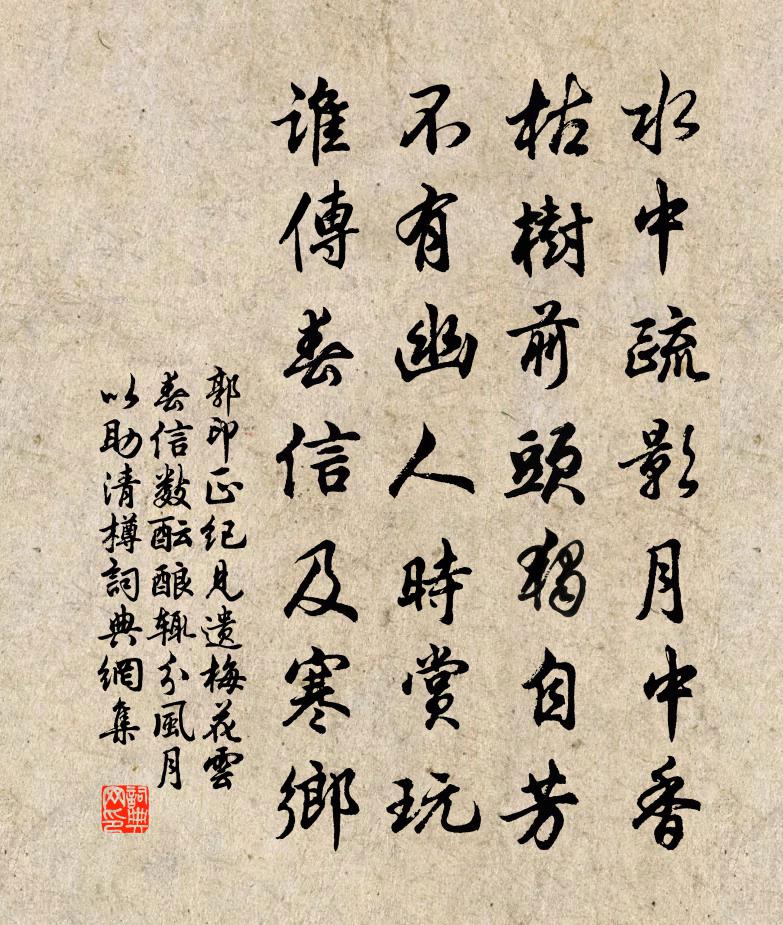 水中疏影月中香
枯樹前頭獨自芳
不有幽人時賞玩
誰傳春信及寒鄉
郭印正纪見遗梅花雲
春信数酝酿辄分風月
以助清樽詞典網集
詞典网印